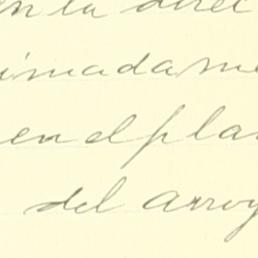 en la direc
imadame
en el pla
del arroy